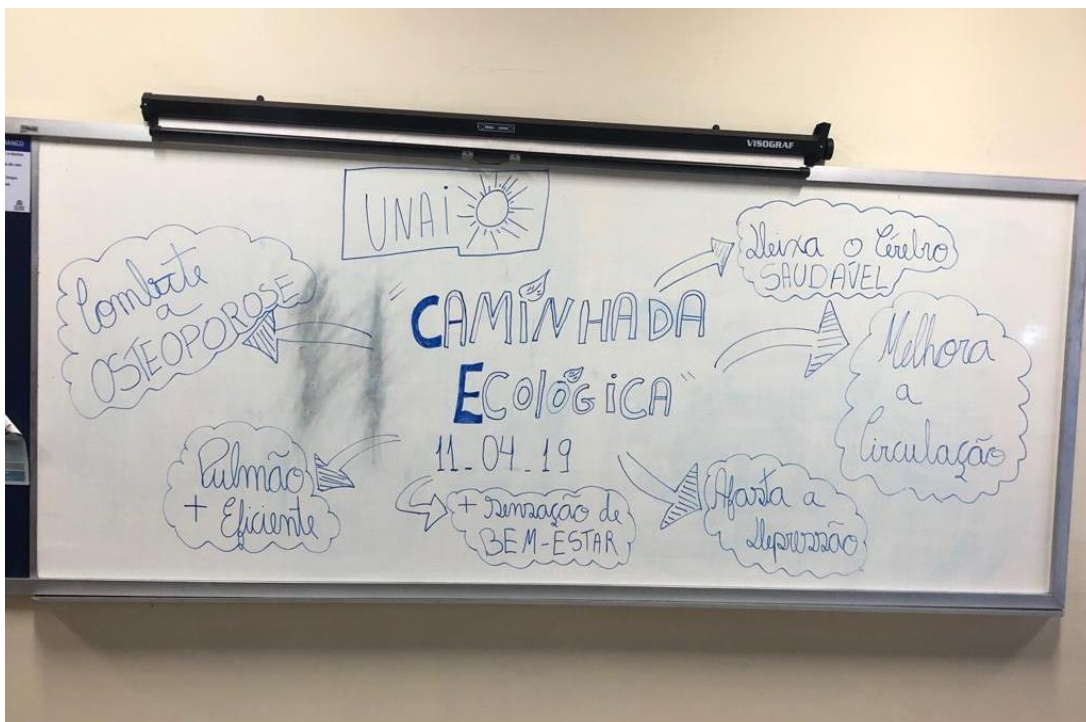 VISOGRAF
UNAi
Combate
a
OSTEOPOROSE
"CAMINHADA
ECOLÓGiCA"
11_04_19
Deixa o Cérebro
SAUDÁVEL
Melhora
a
Circulação
Pulmão
+ Eficiente
+ sensação de
BEM-ESTAR
Afasta a
depressão